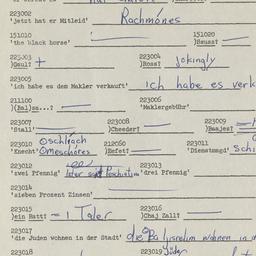 223002
'jetzt hat er Mitleid' Rachmones
151010 151020
'the black horse' )Szuss?
223003 + 223004 jokingly
)Gaul? )Ross?
223005
'ich habe es dem Makler verkauft' ich habe es verk
211100 223006
)(Bal)sa...? 'Maklergebühr'
223007 223008 223009
'Stall' )Cheeder? )Baajes?
223010 Oschlrach 212060 223011
'Knecht' Omeschores )Eefet? 'Dienstmgd' Schi
223012 223013
'zwei Pfennig' 'drei Pfennig'
223014
'sieben Prozent Zinsen'
223015 223016
)ein Ratt? = 1 Taler )Chaj Zall?
223017
'die Juden wohnen in der Stadt' die wohnen in
223018 223019 Jüdn